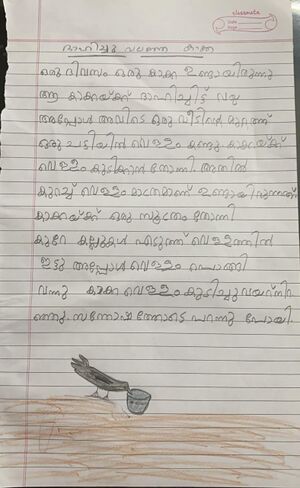 classmate
Date
Page
ദാഹിച്ചു വലഞ്ഞ കാക്ക
ഒരു ദിവസം ഒരു കാക്ക ഉണ്ടായിരുന്നു
ആ കാക്കയ്ക്ക് ദാഹിച്ചിട്ട് വയ്യ
അപ്പോൾ അവിടെ ഒരു വീടിൻ്റെ മുറ്റത്ത്
ഒരു ചട്ടിയിൽ വെള്ളം കണ്ടു കാക്കയ്ക്ക്
വെള്ളം കുടിക്കാൻ തോന്നി. അതിൽ
കുറച്ച് വെള്ളം മാത്രമാണ് ഉണ്ടായിരുന്നത്
കാക്കയ്ക്ക് ഒരു സൂത്രം തോന്നി
കുറേ കല്ലുകൾ എടുത്ത് വെള്ളത്തിൽ
ഇട്ടു അപ്പോൾ വെള്ളം പൊങ്ങി
വന്നു കാക്ക വെള്ളം കുടിച്ചു വയറ്നിറ
ഞ്ഞു. സന്തോഷത്തോടെ പറന്നു പോയി.